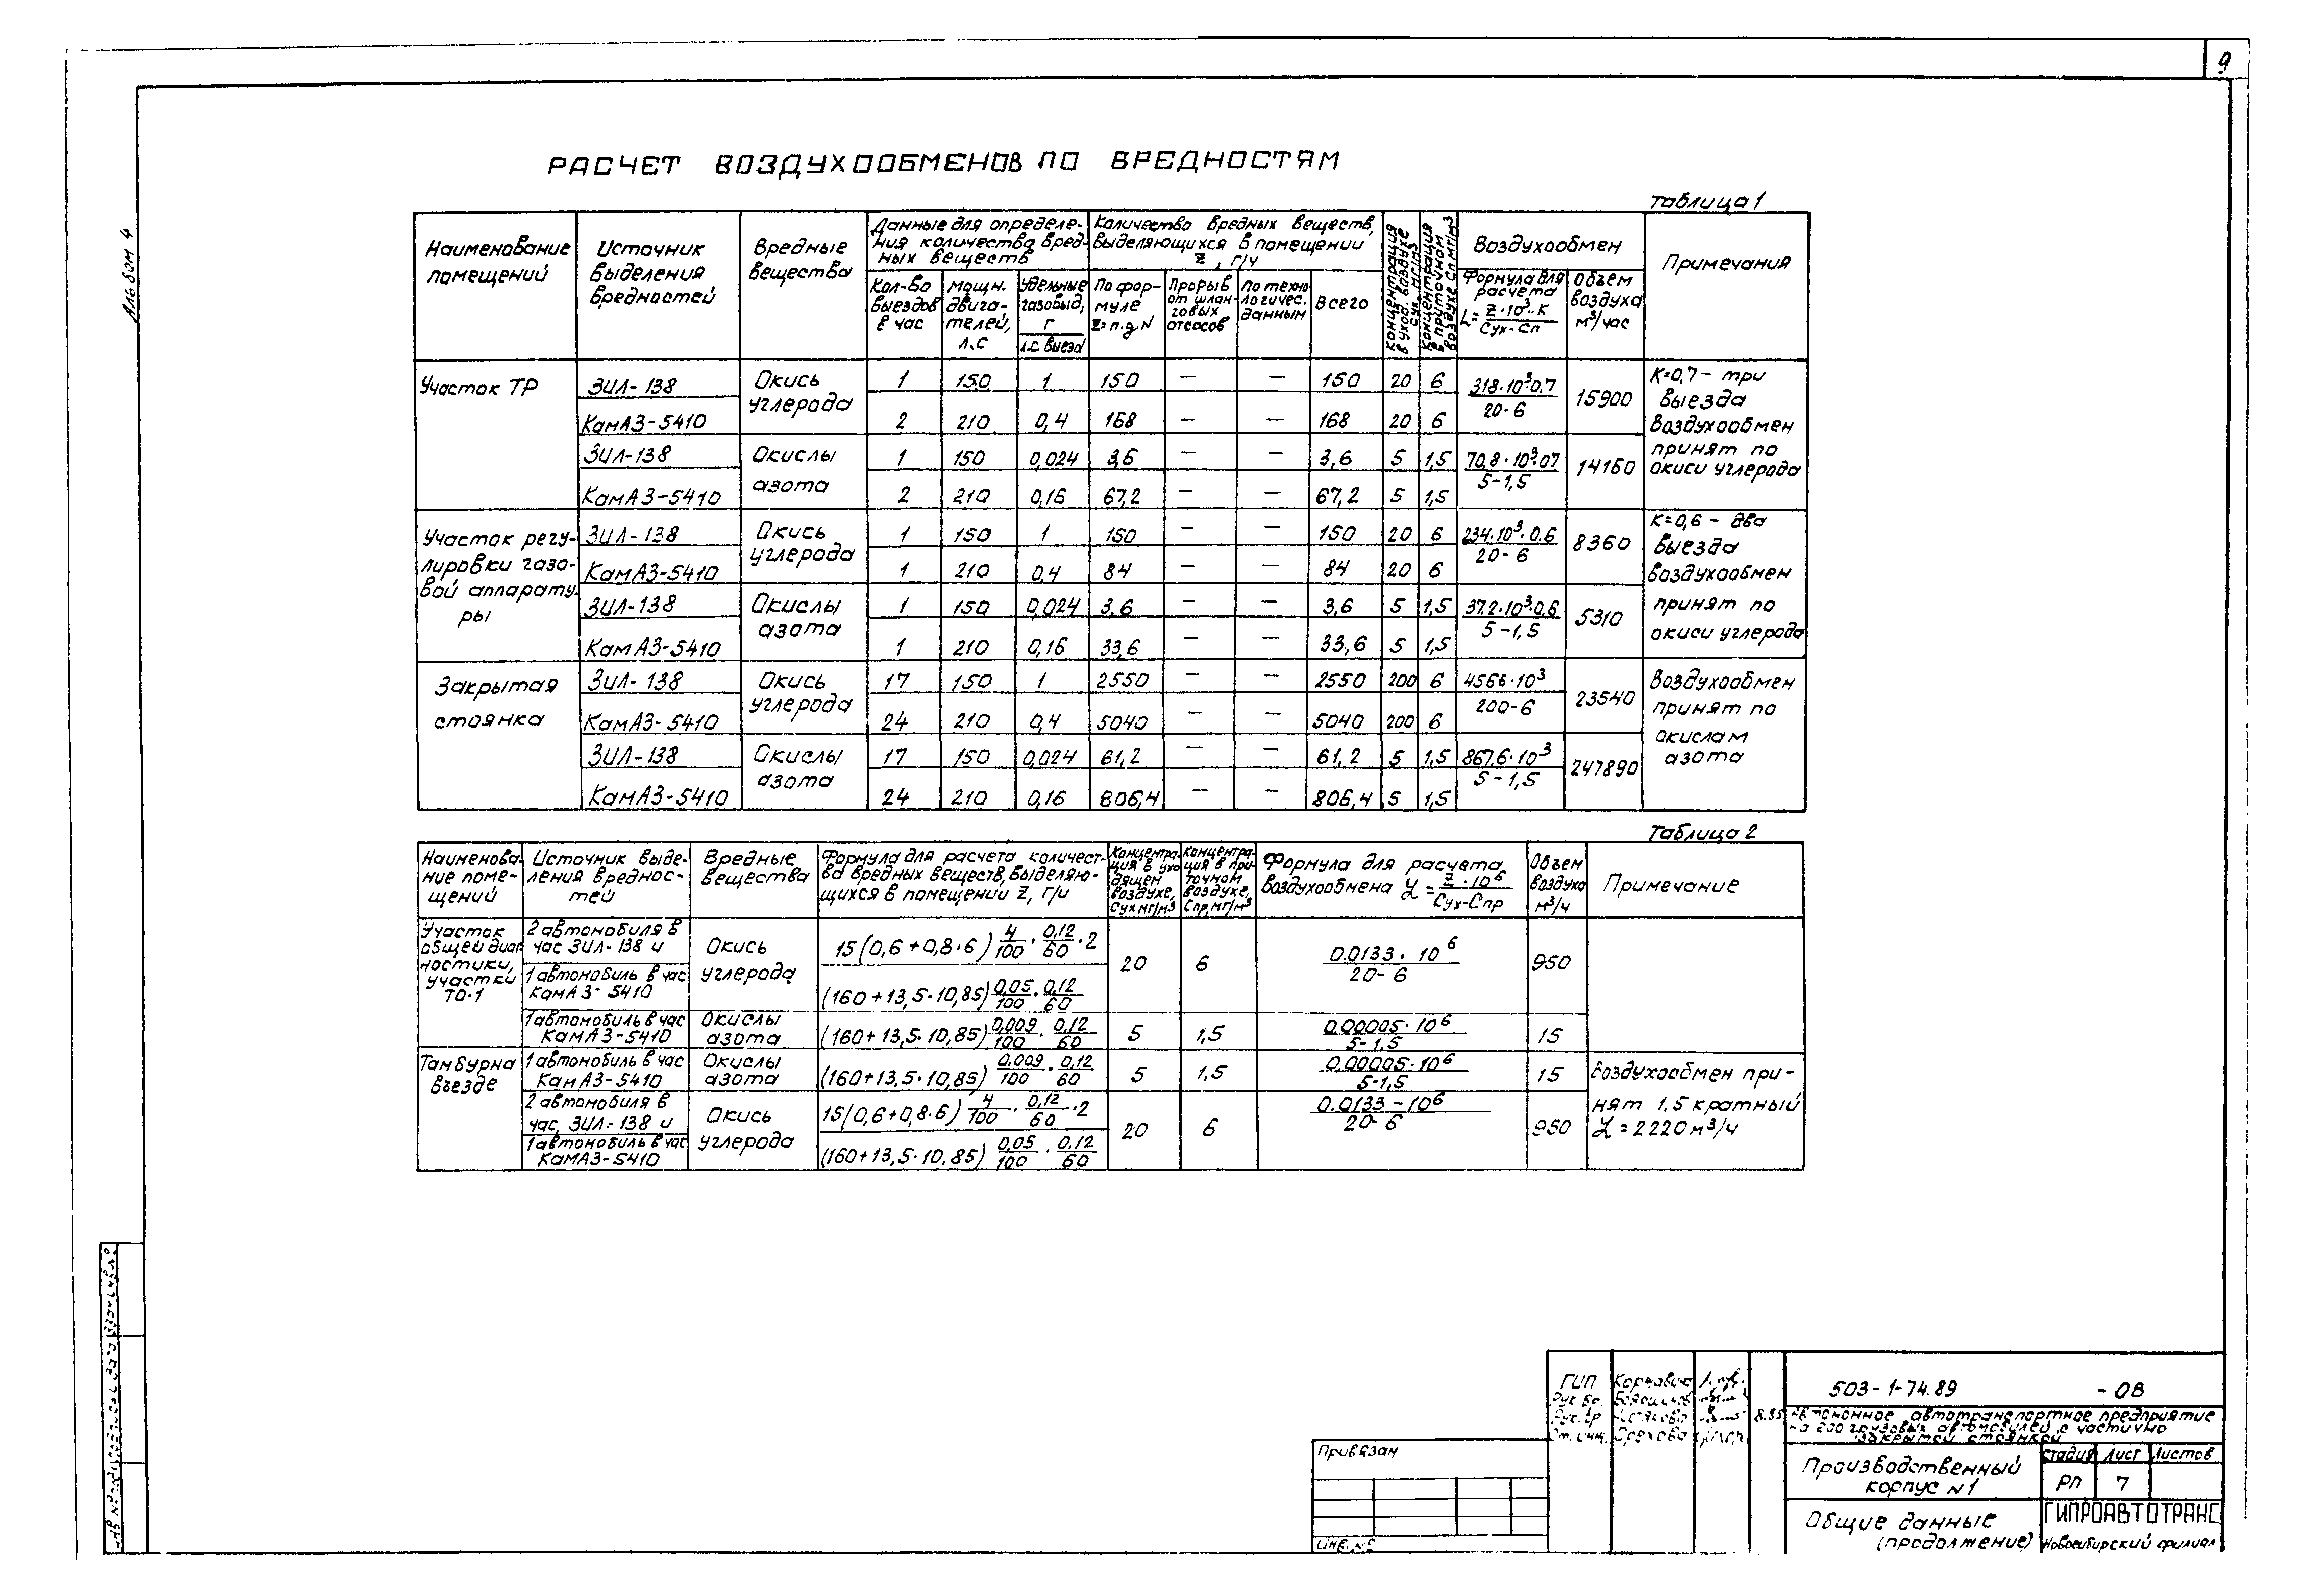 9
Альбом 4
РАСЧЕТ ВОЗДУХООБМЕНОВ ПО ВРЕДНОСТЯМ
Таблица 1
Наименование помещений | Источник выделения вредностей | Вредные вещества | Данные для определения количества вредных веществ | Количество вредных веществ, выделяющихся в помещении Z, г/ч | Концентрация в уход. воздухе Сух. мг/м3 | Концентрация в приточном воздухе Сп мг/м3 | Воздухообмен | Примечания
Кол-во выездов в час | Мощн. двигателей, л.с | Удельные газовыд, г/л.с выезд | По формуле Z=п.д.N | Прорыв от шланговых отсосов | По технологичес. данным | Всего | Формула для расчета L = Z·10³·К / Сух-Сп | Объем воздуха м³/час
Участок ТР | ЗИЛ-138 | Окись углерода | 1 | 150 | 1 | 150 | — | — | 150 | 20 | 6 | 318·10³·0,7 / 20-6 | 15900 | К=0,7 – три выезда
КамАЗ-5410 | 2 | 210 | 0,4 | 168 | — | — | 168 | 20 | 6 | Воздухообмен
ЗИЛ-138 | Окислы азота | 1 | 150 | 0,024 | 3,6 | — | — | 3,6 | 5 | 1,5 | 70,8·10³·07 / 5-1,5 | 14160 | принят по окиси углерода
КамАЗ-5410 | 2 | 210 | 0,16 | 67,2 | — | — | 67,2 | 5 | 1,5
Участок регулировки газовой аппаратуры | ЗИЛ-138 | Окись углерода | 1 | 150 | 1 | 150 | — | — | 150 | 20 | 6 | 234·10³·0.6 / 20-6 | 8360 | К=0,6 – два выезда
КамАЗ-5410 | 1 | 210 | 0,4 | 84 | — | — | 84 | 20 | 6 | Воздухообмен
ЗИЛ-138 | Окислы азота | 1 | 150 | 0,024 | 3,6 | — | — | 3,6 | 5 | 1,5 | 37.2·10³·0,6 / 5-1,5 | 5310 | принят по
КамАЗ-5410 | 1 | 210 | 0,16 | 33,6 | — | — | 33,6 | 5 | 1,5 | окиси углерода
Закрытая стоянка | ЗИЛ-138 | Окись углерода | 17 | 150 | 1 | 2550 | — | — | 2550 | 200 | 6 | 4566·10³ / 200-6 | 23540 | Воздухообмен
КамАЗ-5410 | 24 | 210 | 0,4 | 5040 | — | — | 5040 | 200 | 6 | принят по
ЗИЛ-138 | Окислы азота | 17 | 150 | 0,024 | 61,2 | — | — | 61,2 | 5 | 1,5 | 867,6·10³ / 5-1,5 | 247890 | окислам азота
КамАЗ-5410 | 24 | 210 | 0,16 | 806,4 | — | — | 806,4 | 5 | 1,5
Таблица 2
Наименование помещений | Источник выделения вредностей | Вредные вещества | Формула для расчета количества вредных веществ, выделяющихся в помещении Z, г/ч | Концентрация в уходящем воздухе, Сух мг/м³ | Концентрация в приточном воздухе, Спр, мг/м³ | Формула для расчета воздухообмена L = Z·10⁶ / Сух-Спр | Объем воздуха м³/ч | Примечание
Участок общей диагностики, участки ТО-1 | 2 автомобиля в час ЗИЛ-138 и | Окись углерода | 15(0,6+0,8·6) 4/100 · 0,12/60 ·2 | 20 | 6 | 0.0133·10⁶ / 20-6 | 950
1 автомобиль в час КамАЗ-5410 | (160+13,5·10,85) 0,05/100 · 0,12/60
1 автомобиль в час КамАЗ-5410 | Окислы азота | (160+13,5·10,85) 0,009/100 · 0,12/60 | 5 | 1,5 | 0.00005·10⁶ / 5-1,5 | 15
Тамбур на въезде | 1 автомобиль в час КамАЗ-5410 | Окислы азота | (160+13,5·10,85) 0.009/100 · 0,12/60 | 5 | 1,5 | 0,00005·10⁶ / 5-1,5 | 15 | Воздухообмен при-
2 автомобиля в час, ЗИЛ-138 и | Окись углерода | 15(0,6+0,8·6) 4/100 · 0,12/60 ·2 | 20 | 6 | 0.0133-10⁶ / 20-6 | 950 | нят 1,5 кратный L=2220 м³/ч
1 автомобиль в час КАМАЗ-5410 | (160+13,5·10,85) 0,05/100 · 0,12/60
ГИП
Орехова
503-1-74.89 -ОВ
Автономное автотранспортное предприятие
на 200 грузовых автомобилей с частично
закрытой стоянкой
Привязан
Производственный
корпус №1
Стадия Лист Листов
РП 7
Общие данные
(продолжение)
ГИПРОАВТОТРАНС
Новосибирский филиал
Инв. №